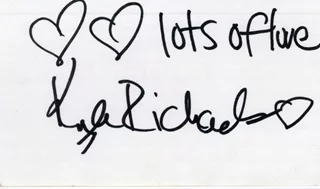 ♡♡ lots of love
Kyle Richards ♡